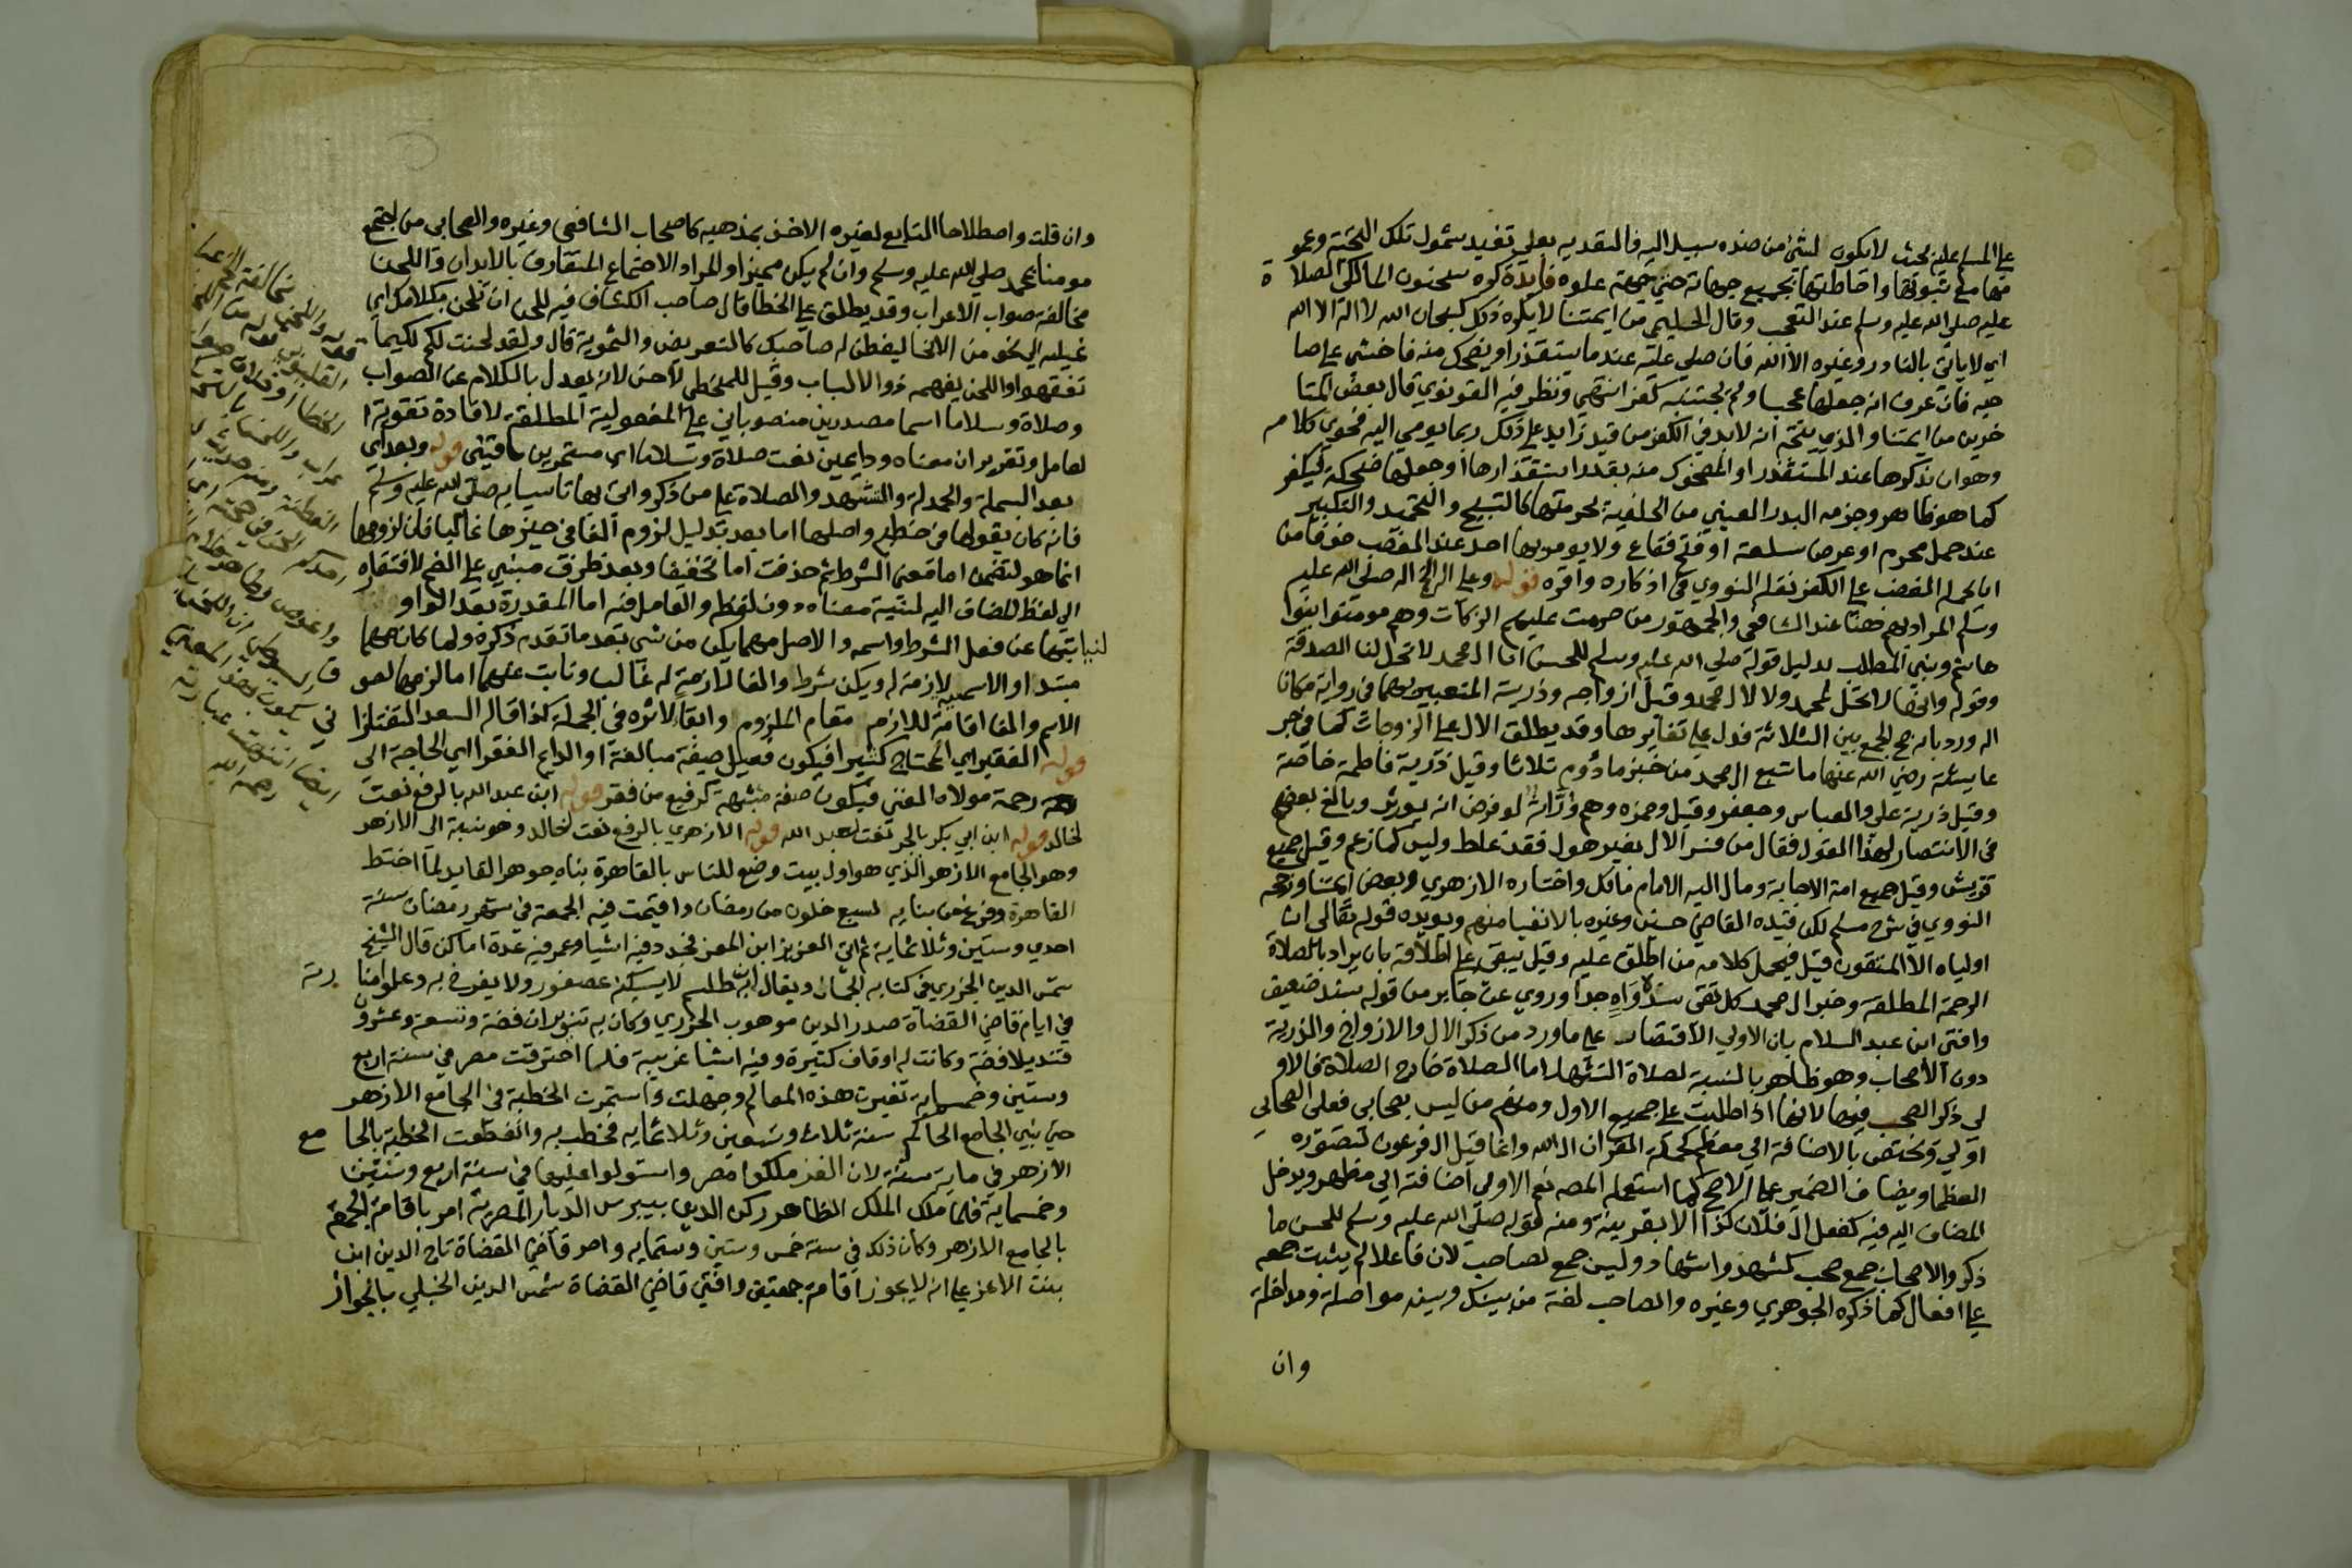 على المسلم عليه بحيث لا يكون لشئ من ضده سبيل اليه فالتقديم بعلى تفيد شمول تلك التحية وعمو
مها مع ثبوتها واحاطتها بجميع جهاته حتى جهة علوه فايدة كره سحنون المالكي الصلاة
عليه صلى الله عليه وسلم عند التعجب وقال الحليمي من ايمتنا لا يكره ذلك كسبحان الله لا اله الا الله
اي لا ياتي بالنادر وغيره الا الله فان صلى عليه عند ما يستقذر او يضحك منه فاخشى على صا
حبه فان عرف انه جعلها عجبا ولم يجتنبه كفر انتهى ونظر فيه القونوي قال بعض المتا
خرين من ايمتنا والذي يتجه انه لا بد في الكفر من قيد زايد على ذلك ربما يومي اليه فحوى كلامه
وهو ان يذكرها عند المستقذر او المضحوك منه بقصد استقذارها او جعلها ضحكة فيكفر
كما هو ظاهر وجزم البدر العيني من الحنفية بحرمتها كالتسبيح والتحميد والتكبير
عند عمل محرم او عرض سلعة او فتح فقاع ولا يومر بها احد عند الغضب خوفا من
ان يحمله الغضب على الكفر نقله النووي في اذكاره واقره قوله وعلى اله صلى الله عليه
وسلم المراد بهم هنا عند الشافعي والجمهور من حرمت عليهم الزكات وهم مومنوا بنوا
هاشم وبني المطلب بدليل قوله صلى الله عليه وسلم للحسن انا ال محمد لا تحل لنا الصدقة
وقوله وانها لا تحل لمحمد ولا لال محمد وقيل ازواجه وذريته المتعبيين بهما في رواية مكان
اله ورد بانه صح الجمع بين الثلاثة فدل على تغايرها وقد يطلق الال على الزوجات كما في خبر
عايشة رضي الله عنها ما شبع ال محمد من خبز مأدوم ثلاثا وقيل ذرية فاطمة خاصة
وقيل ذرية علي والعباس وجعفر وقيل وحمزه وهم وراثه لو فرض انه يورث وبالغ بعضهم
في الانتصار لهذا القول فقال من فسر الال بغير هول فقد غلط وليس كما زعم وقيل جميع
قريش وقيل جميع امة الاجابة ومال اليه الامام مالك واختاره الازهري وبعض ايمتنا ورجحه
النووي في شرح مسلم لكن قيده القاضي حسين وغيره بالاتقيا منهم ويويده قوله تعالى ان
اولياه الا المتقون قيل فيحمل كلامه من اطلق عليه وقيل يبقى على اطلاقه بان يراد بالصلاة
الرحمة المطلقة وخبر ال محمد كل تقي سنده واه جدا وروي عن جابر من قوله بسند ضعيف
وافتى ابن عبد السلام بان الاولى الاقتصار على ما ورد من ذكر الال والازواج والذرية
دون الاصحاب وهو ظاهر بالنسبة لصلاة التشهد اما الصلاة خارج الصلاة فالاو
لى ذكر الصحب فيها لانها اذا طلبت على جميع الاول ومنهم من ليس بصحابي فعلى الصحابي
اولى وتختص بالاضافة الى معظم كحملة القران ال الله وانما قيل ال فرعون لتصوره
العظما ويضاف الضمير على الاصح كما استعمله المصنف الاولى اضافته الى مظهر ويدخل
المضاف اليه فيه كفعل ال فلان كذا الا بقرينة ومنه قوله صلى الله عليه وسلم للحسن ما
ذكر والاصحاب جمع صحب كشهد واشهاد وليس جمع لصاحب لان فاعلا لم يثبت جمعه
على افعال كما ذكره الجوهري وغيره والصاحب لغة من بينك وبينه مواصلة ومداخلة
وان
وان قلت واصطلاحا التابع لغيره الاخذ بمذهبه كاصحاب الشافعي وغيره والصحابي من اجتمع
مومنا بمحمد صلى الله عليه وسلم وان لم يكن مميزا والمراد الاجتماع المتعارف بالابدان واللحن
مخالفة صواب الاعراب وقد يطلق على الخطا قال صاحب الكشاف فيه للحن ان تلحن بكلامك اي
تميله الى نحو من الانحا ليفطن له صاحبك كالتعريض والتورية قال ولقد لحنت لكم لكيما
تفقهوا واللحن يفهمه ذوو الالباب وقيل للمخطي لاحن لانه يعدل بالكلام عن الصواب
وصلاة وسلاما اسما مصدرين منصوبان على المفعولية المطلقة لافادة تقوية ا
لعامل وتقرير ان معناه ودايمين نعت صلاة وسلاما اي مستمرين باقيتين قوله وبعد اي
بعد البسملة والحمدلة والتشهد والصلاة على من ذكر واتى بها تاسيا به صلى الله عليه وسلم
فانه كان يقولها في خطبه واصلها اما بعد بدليل لزوم الفا في حيزها غالبا فان لزومها
انما هو لتضمن اما معنى الشرط ثم حذفت اما تخفيفا وبعد ظرف مبني على الضم لافتقاره
الى لفظ المضاف اليه لنية معناه دون لفظه والعامل فيه اما المقدرة بعد الواو
لنيابتها عن فعل الشرط واسمه والاصل مهما يكن من شي بعد ما تقدم ذكره ولما كان مهما
مبتدا والاسمية لازمة له ويكن شرط والفا لازمة له غالبا ونابت عنهما اما لزمها لصو
الاسم والفا اقامة للازم مقام الملزوم وابقا لاثره في الجملة كذا قاله السعد التفتازا ني
قوله الفقير اي المحتاج كثيرا فيكون فعيل صيغة مبالغة او الدايم الفقر اي الحاجة الى
رحمة مولاه الغني فيكون صفة مشبهة كرفيع من فقر قوله ابن عبد الله بالرفع نعت
لخالد قوله ابن ابي بكر بالجر نعت لعبد الله قوله الازهري بالرفع نعت لخالد وهو نسبة الى الازهر
وهو الجامع الازهر الذي هو اول بيت وضع للناس بالقاهرة بناه جوهر القايد لما اختط
القاهرة وفرغ من بنايه لسبع خلون من رمضان واقيمت فيه الجمعة في شهر رمضان سنة
احدي وستين وثلاثماية ثم اتى العزيز ابن المعز فجدد فيه اشيا وعمر فيه عدة اماكن قال الشيخ
شمس الدين الجزري في كتابه الجمان ويقال ان به طلسم لا يسكنه عصفور ولا يفرخ به وعملوا منارته
في ايام قاضي القضاة صدر الدين موهوب الجزري وكان به تنوران فضة وتسعة وعشرو
قنديلا فضة وكانت له اوقاف كثيرة وفيه اشيا غريبة فلما احترقت مصر في سنة اربع
وستين وخمسمايه تغيرت هذه المعالم وجهلت واستمرت الخطبة في الجامع الازهر
حتى بني الجامع الحاكم سنة ثلاث وتسعين وثلاثمايه فخطب به وانقطعت الخطبة بالجامع
الازهر في ماية سنة لان الغز ملكوا مصر واستولوا عليها في سنة اربع وستين
وخمسماية فلما ملك الملك الظاهر ركن الدين بيبرس الديار المصرية امر باقامة الجمعة
بالجامع الازهر وكان ذلك في سنة خمس وستين وستمايه وامر قاضي القضاة تاج الدين ابن
بنت الاعز على انه لا يجوز اقامة جمعتين وافتى قاضي القضاة شمس الدين الحنبلي بالجواز
قوله واللحن مخالفة